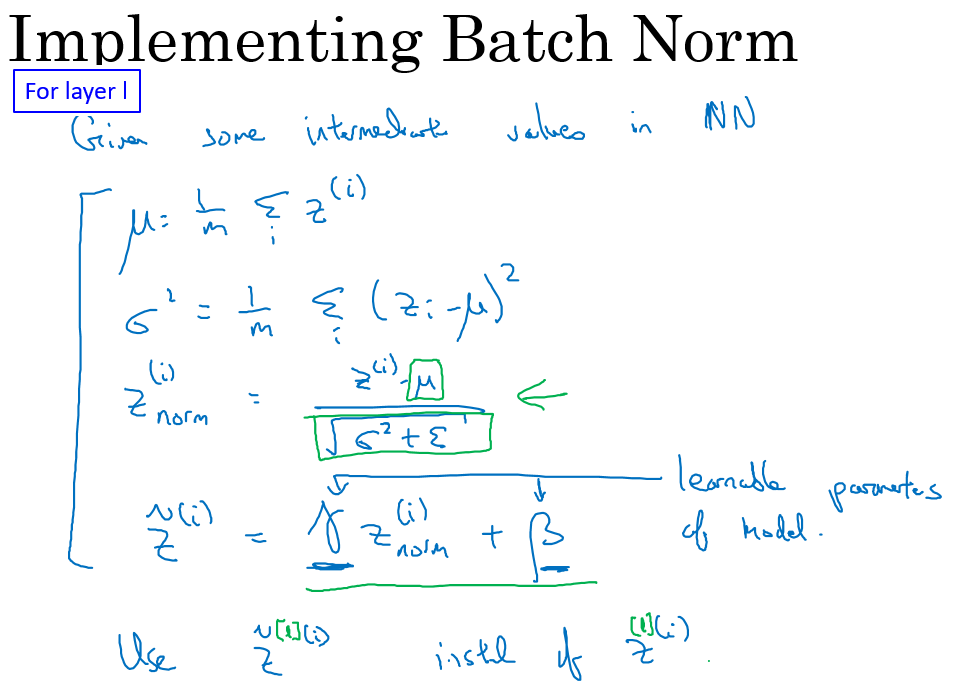 Implementing Batch Norm
For layer l
Given some intermediate values in NN
μ = 1/m Σ_i z^(i)
σ² = 1/m Σ_i (z_i - μ)²
z_norm^(i) = (z^(i) - μ) / √(σ² + ε)
z̃^(i) = γ z_norm^(i) + β
learnable parameters
of model.
Use z̃^[l](i) instead of z^[l](i).